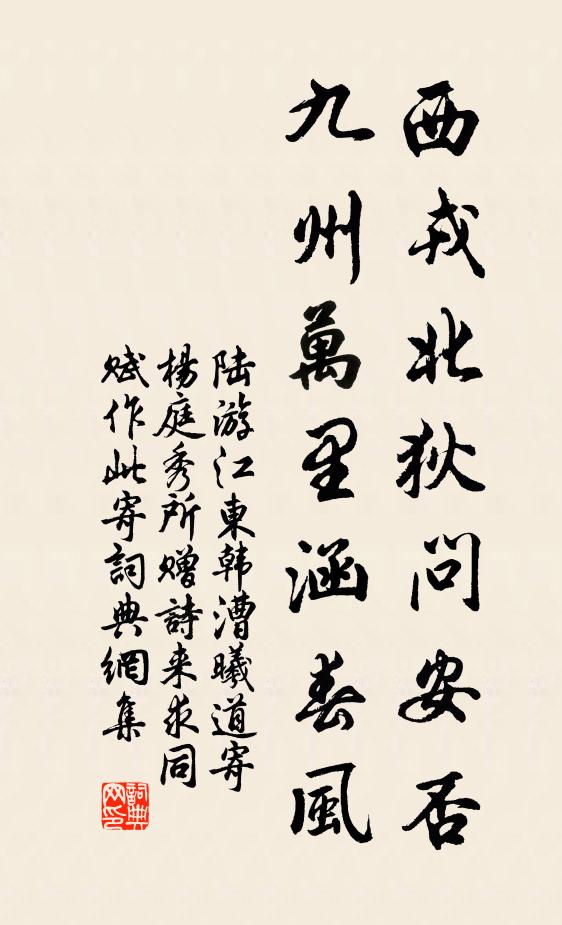 西戎北狄問安否
九州萬里涵春風
陆游江東韩漕曦道寄
楊庭秀所贈詩来求同
赋作此寄詞典網集
詞典网印